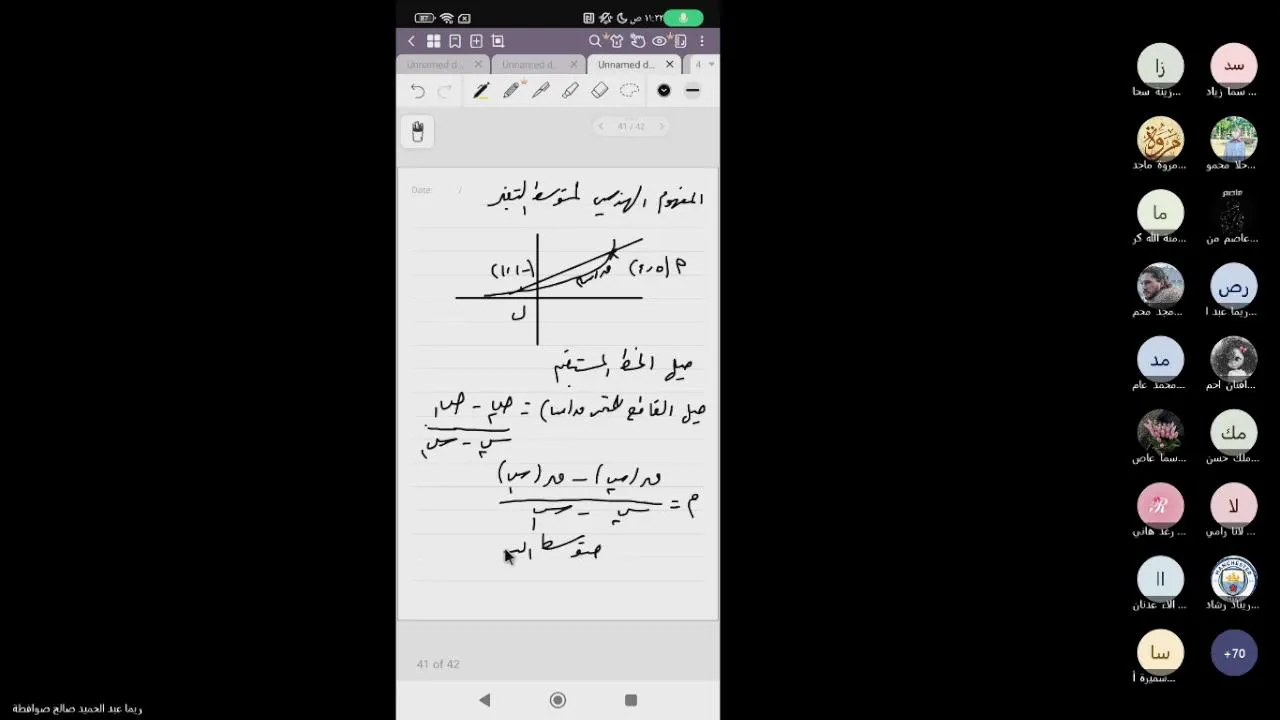 ١١:٢٢ ص
87
Unnamed d...
Unnamed d...
Unnamed d...
4
41 / 42
Date: /
المفهوم الهندسي لمتوسط التغير
(١،١-)
م (٤،٥)
ل
ميل الخط المستقيم
ميل القاطع = ص٢ - ص١
س٢ - س١
م = ق(س٢) - ق(س١)
س٢ - س١
متوسط الت
41 of 42
زا
زينة سحا...
سد
سما زياد...
مروة ماجد...
حلا محمو...
ما
منة الله كر...
عاصم من...
مجد محم...
رص
ريما عبد ا...
مد
محمد عام...
افنان احم...
سما عاص...
مك
ملك حسن...
رغد هاني...
لا
لانا رامي...
اا
الاء عدنان...
MANCHESTER
ريناد رشاد...
سا
سميرة أ...
+70
ريما عبد الحميد صالح صوافطة